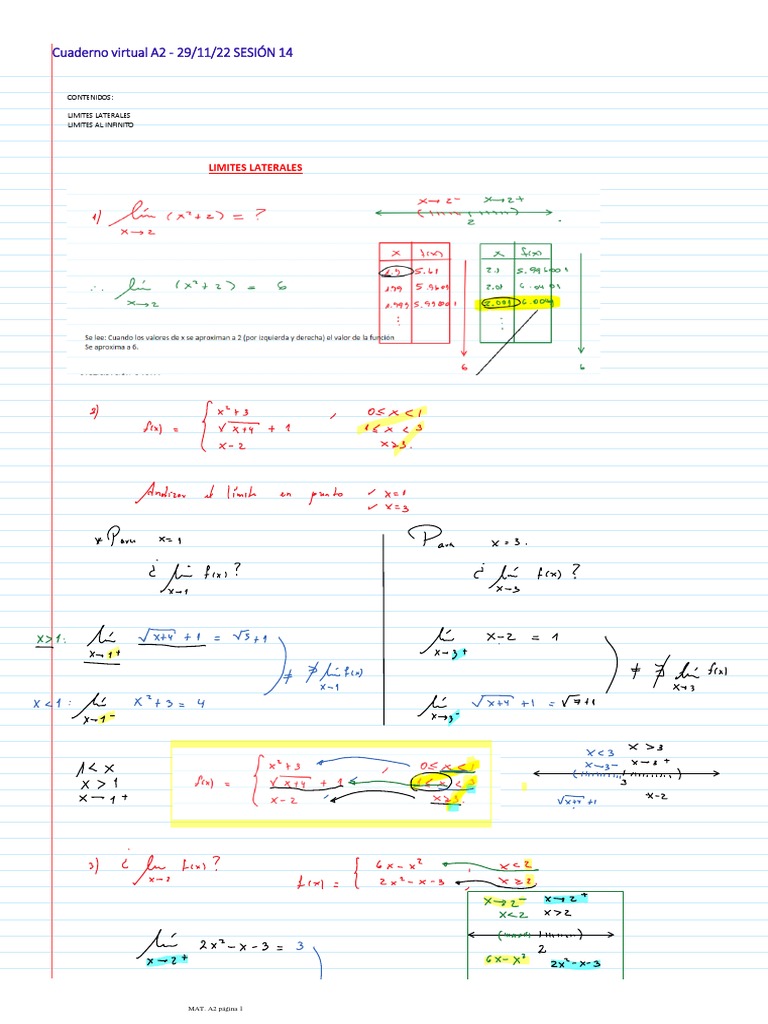 Cuaderno virtual A2 - 29/11/22 SESIÓN 14
CONTENIDOS:
LIMITES LATERALES
LIMITES AL INFINITO
LIMITES LATERALES
x→2⁻ x→2⁺
1) lím (x²+2) = ?
x→2
2
x f(x) x f(x)
1.9 5.61 2.1 5.996001
1.99 5.9601 2.01 6.0401
1.999 5.996001 2.001 6.004
⋮ ⋮
∴ lím (x²+2) = 6
x→2
Se lee: Cuando los valores de x se aproximan a 2 (por izquierda y derecha) el valor de la función
Se aproxima a 6.
6 6
2) f(x) = { x²+3 , 0≤x<1
√x+4 + 1 1≤x<3
x-2 x≥3.
Analizar el límite en punto ✓ x=1
✓ x=3
* Para x=1
¿ lím f(x)?
x→1
x>1: lím √x+4 + 1 = √5+1
x→1⁺
≠ ∄ lím f(x)
x→1
x<1: lím x²+3 = 4
x→1⁻
Para x=3.
¿ lím f(x)?
x→3
lím x-2 = 1
x→3⁺
≠ ∄ lím f(x)
x→3
lím √x+4 + 1 = √7+1
x→3⁻
1<x
x>1
x→1⁺
f(x) = { x²+3 , 0≤x<1
√x+4 + 1 1≤x<3
x-2 x≥3.
x<3 x>3
x→3⁻ x→3⁺
3
√x+4 +1 x-2
3) ¿ lím f(x)?
x→2
f(x) = { 6x-x² , x<2
2x²-x-3 , x≥2
x→2⁻ x→2⁺
x<2 x>2
2
6x-x² 2x²-x-3
lím 2x²-x-3 = 3
x→2⁺
MAT. A2 página 1